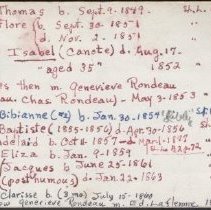 Thomas b. Sept. 9. 1849. St.L.
Flore b. Sept. 30. 1851 "
d. Nov. 2. 1851 "
Isabel (Canote) d. Aug. 17.
"aged 35" 1852 "
then m. Genevieve Rondeau
Chas. Rondeau). May. 3. 1853 "
Bibianne (#2) b. Jan. 30. 1854
Baptiste (1855-1856) d. Apr. 30 1856
b. Oct 1857 d. 1897
Eliza b. Jan. 9 1859
Jacques b. June 25. 1861
(posthumous) d. Jan 22. 1863
Clarisse b (3 mo) July 15 1860
Genevieve Rondeau m. Laflemme